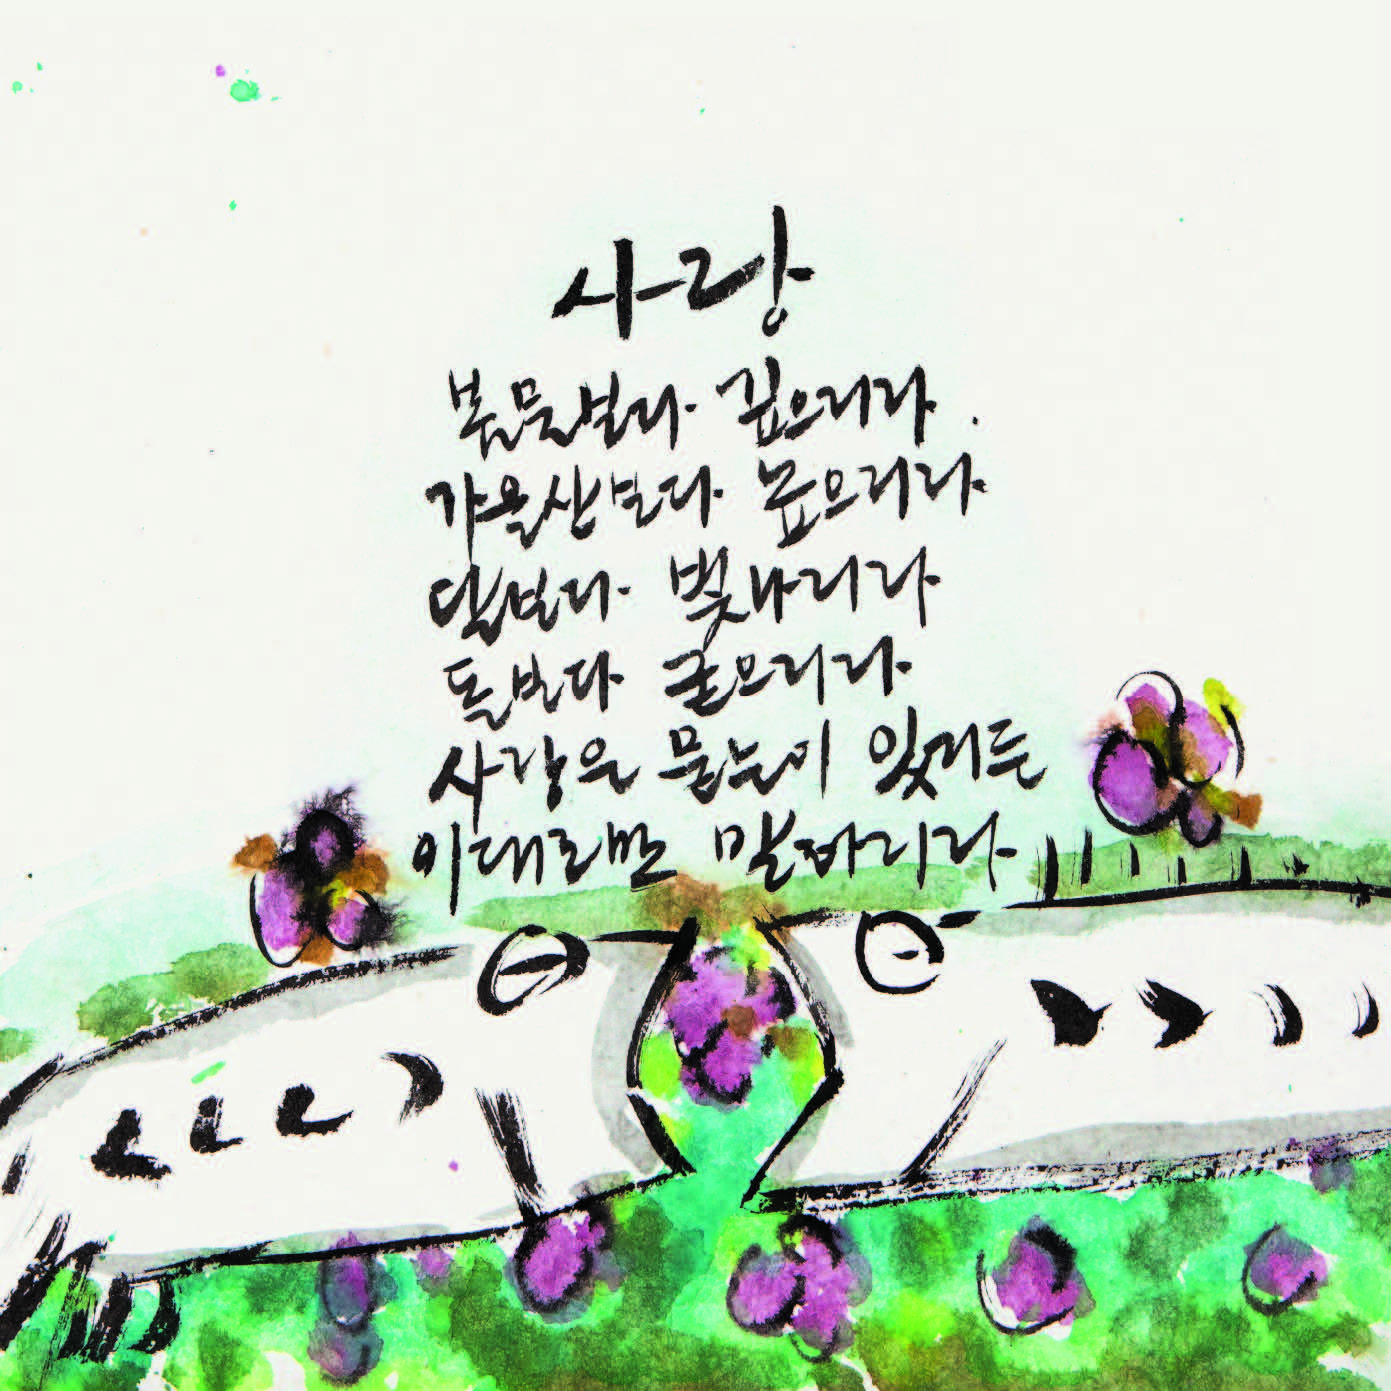 사랑
봄물보다 깊으리라.
가을산보다 높으리라
달보다 빛나리라
돌보다 굳으리라
사랑을 묻는이 있거든
이대로만 말하리라